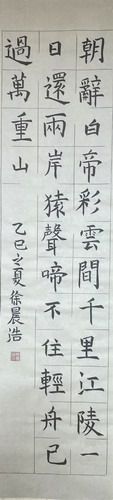 朝辭白帝彩雲間千里江陵一
日還兩岸猿聲啼不住輕舟已
過萬重山
乙巳之夏徐晨浩